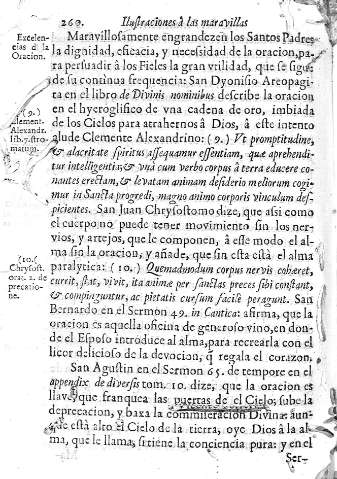 260. Ilustraciones á las maravillas
Excelen-
cias d la
Oracion.
Maravillosamente engrandezen los Santos Padres
la dignidad, eficacia, y necessidad de la oracion, pa-
ra persuadir à los Fieles la gran vtilidad, que se sigue
de su continua frequencia: San Dyonisio Areopagita
en el libro de Divinis nominibus describe la oracion
en el hyeroglifico de vna cadena de oro, imbiada
de los Cielos para atrahernos â Dios, â este intento
alude Clemente Alexandrino: (9.) Vt promptitudine,
& alacritate spiritus assequamur essentiam, quæ aprehendi-
tur intelligentia; & vná cum verbo corpus à terra educere co-
nantes erectam, & levatam animam desiderio meliorum cogi-
mur in Sancta progredi, magno animo corporis vinculum des-
picientes. San Juan Chrysostomo dize, que asi como
el cuerpo no puede tener movimiento sin los ner-
vios, y artejos, que le componen, â ese modo el al-
ma sin la oracion, y añade, que sin esta está el alma
paralytica: (10.) Quemadmodum corpus nervis cohæret,
currit, stat, vivit, ita animæ per sanctas preces sibi constant,
& compinguntur, ac pietatis cursum facilè peragunt. San
Bernardo en el Sermon 49. in Cantica: afirma, que la
oracion es aquella oficina de generoso vino, en don-
de el Esposo introduce al alma, para recrearla con el
licor delicioso de la devocion, q̃ regala el corazon.
San Agustin en el Sermon 65. de tempore en el
appendix de diversis tom. 10. dize, que la oracion es
llave, que franquea las puertas de el Cielo; sube la
deprecacion, y baxa la commiseracion Divina: aun-
que está alto el Cielo de la tierra, oye Dios à la al-
ma, que le llama, si tiene la conciencia pura: y en el
Ser-
(9.)
Clement.
Alexandr.
lib. 7. stro-
matum.
(10.)
Chrysost.
orat. 2. de
precatio-
ne.